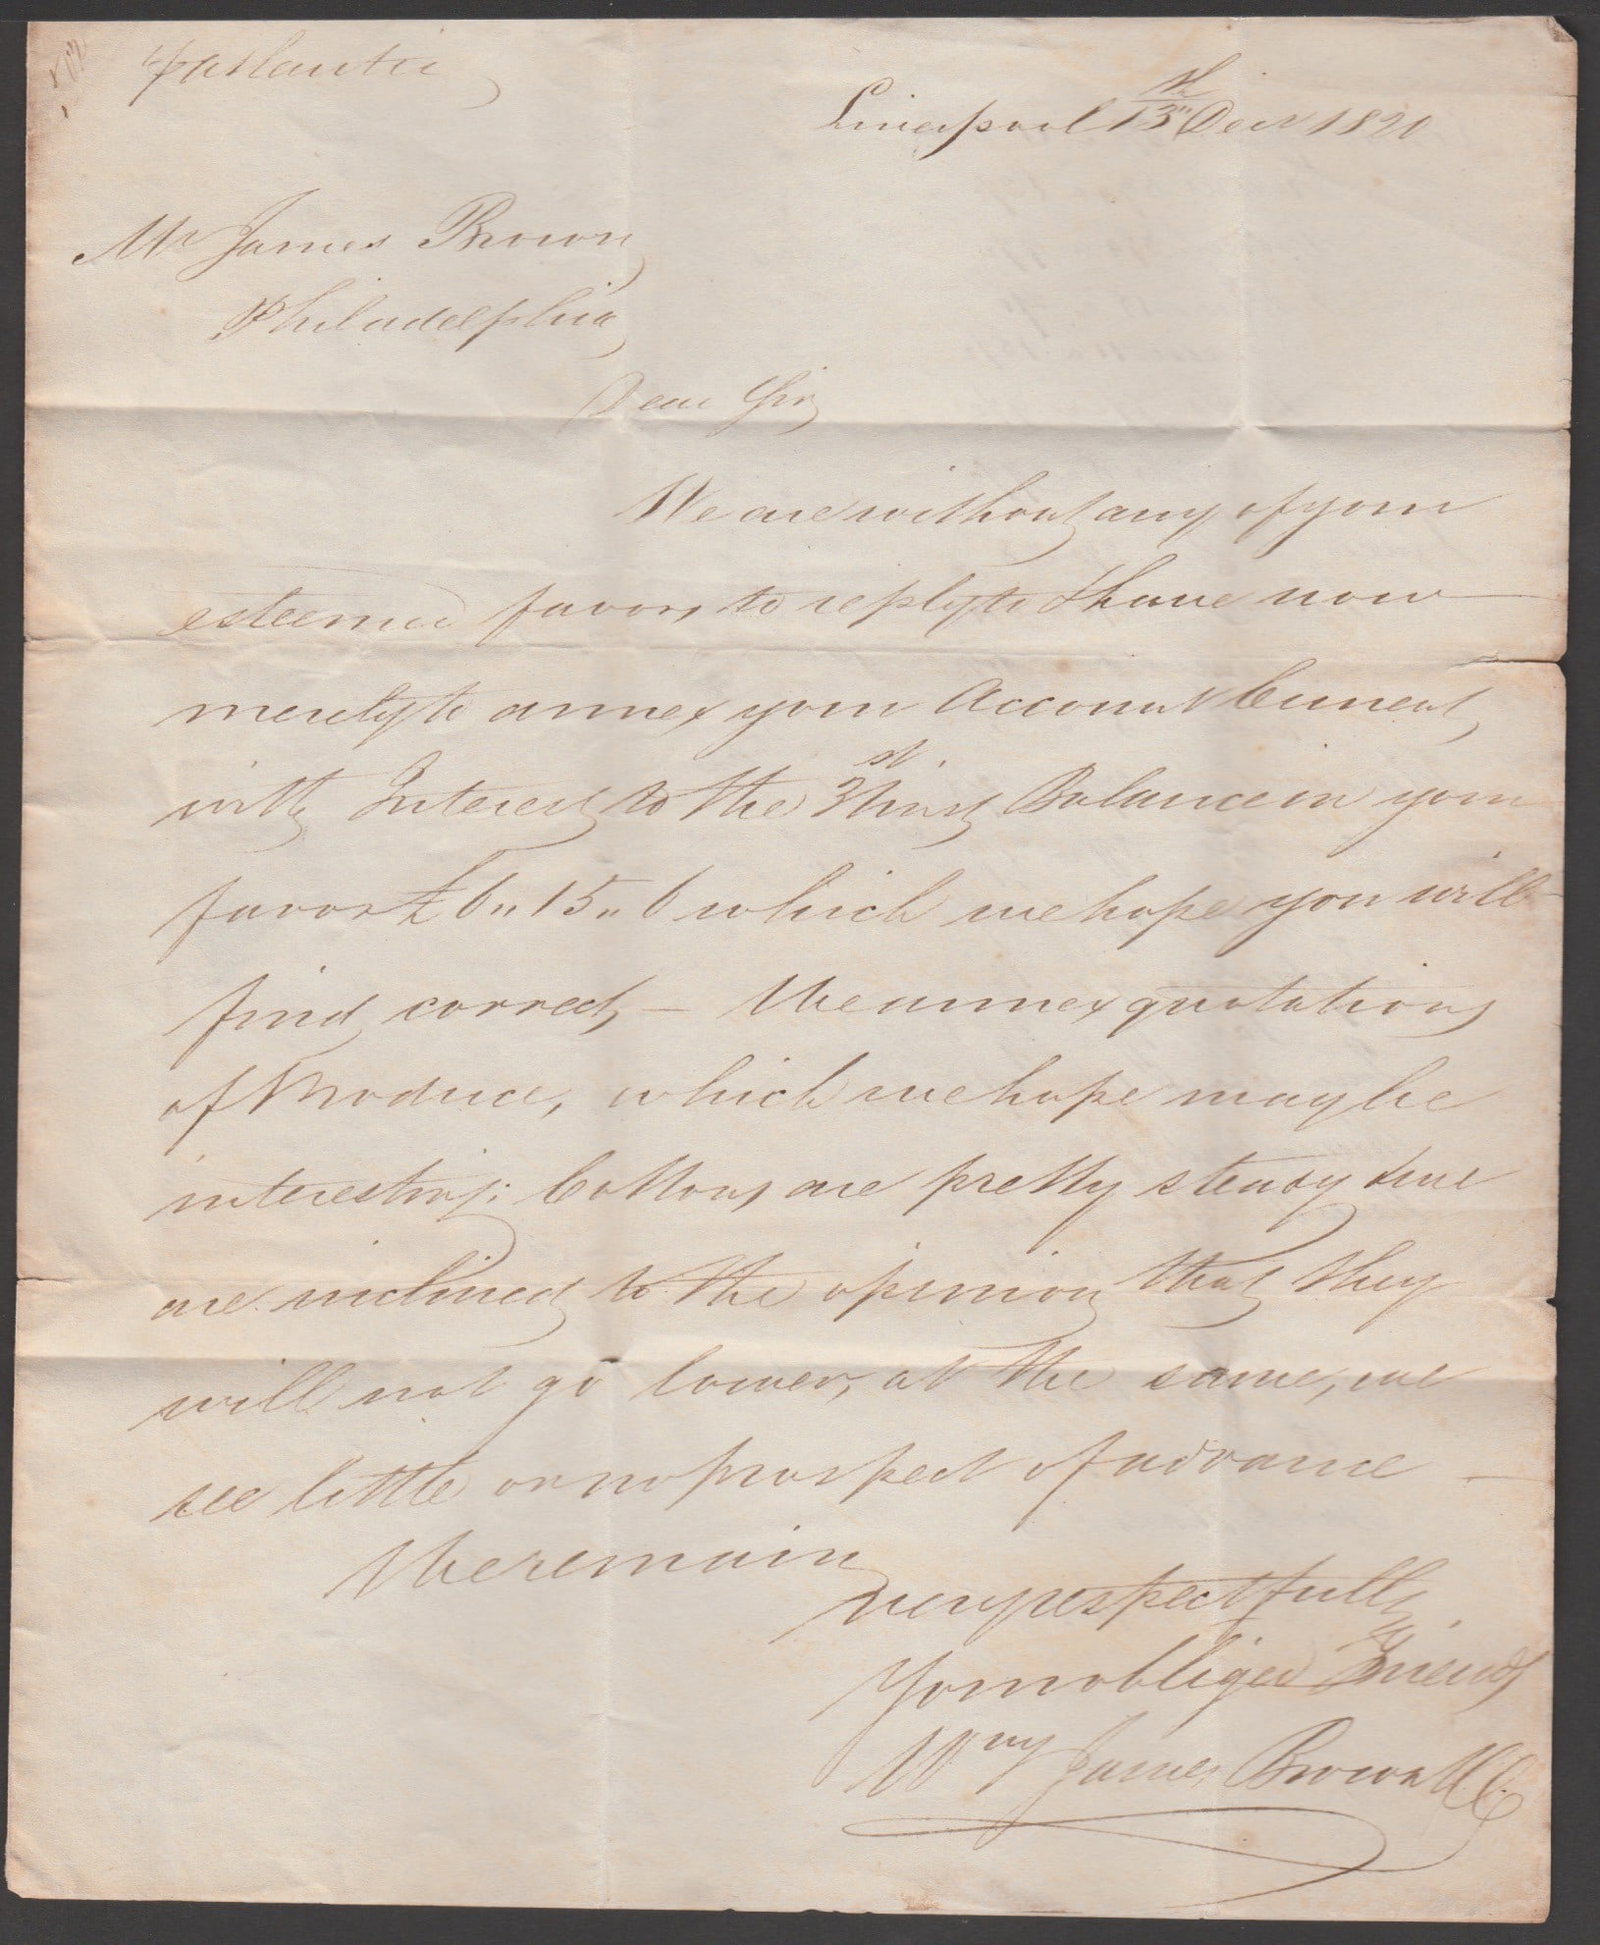 ℘ Atlantic
Liverpool 13th Decr 1820
Mr James Brown
Philadelphia
Dear Sir
We are without any of your
esteemed favors to reply to & have now
merely to annex your Account Current
with Interest to the 31st inst Balance in your
favor £6"15"6 which we hope you will
find correct, — We annex quotations
of Produce, which we hope may be
interesting: Cottons are pretty steady & we
are inclined to the opinion that they
will not go lower, at the same, we
see little or no prospect of advance —
We remain
very respectfully
Your obliged Friends
Wm & James Brown & Co